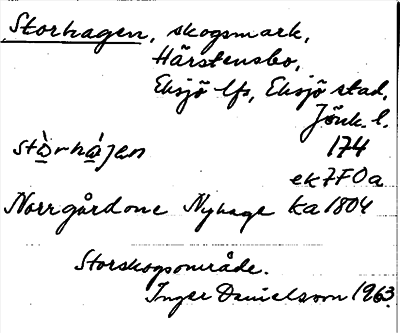 Storhagen, skogsmark,
Härstensbo,
Eksjö lfs, Eksjö stad,
Jönk. l.
stòrhájen 174
ek 7F0a
Norrgårdone Nyhage ka 1804
Storskogsområde.
Inger Danielsson 1963.